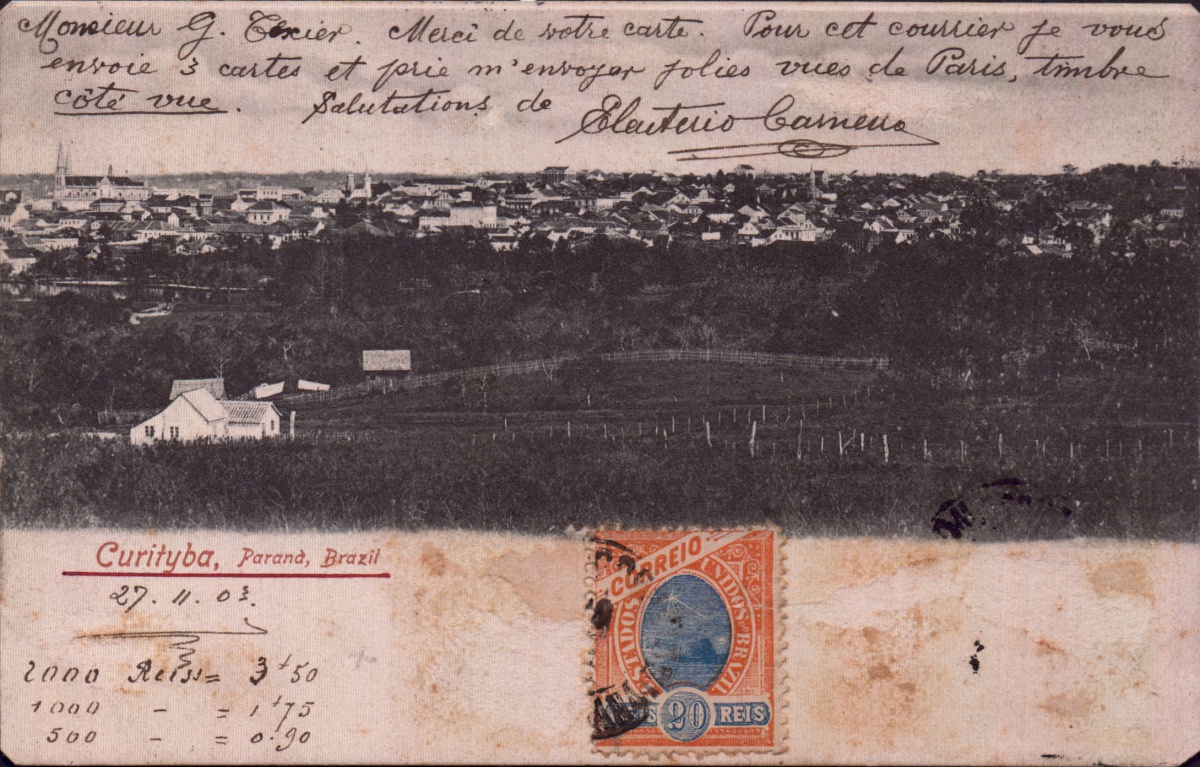 Monsieur G. Texier. Merci de votre carte. Pour cet courrier je vous
envoie 3 cartes et prie m'envoyer jolies vues de Paris, timbre
côté vue. Salutations de
Curityba, Paraná, Brazil
27.11.03.
2000 Reiss = 3+50
1000 - = 1+75
500 - = 0.90
CORREIO
ESTADOS UNIDOS DO BRAZIL
20 REIS